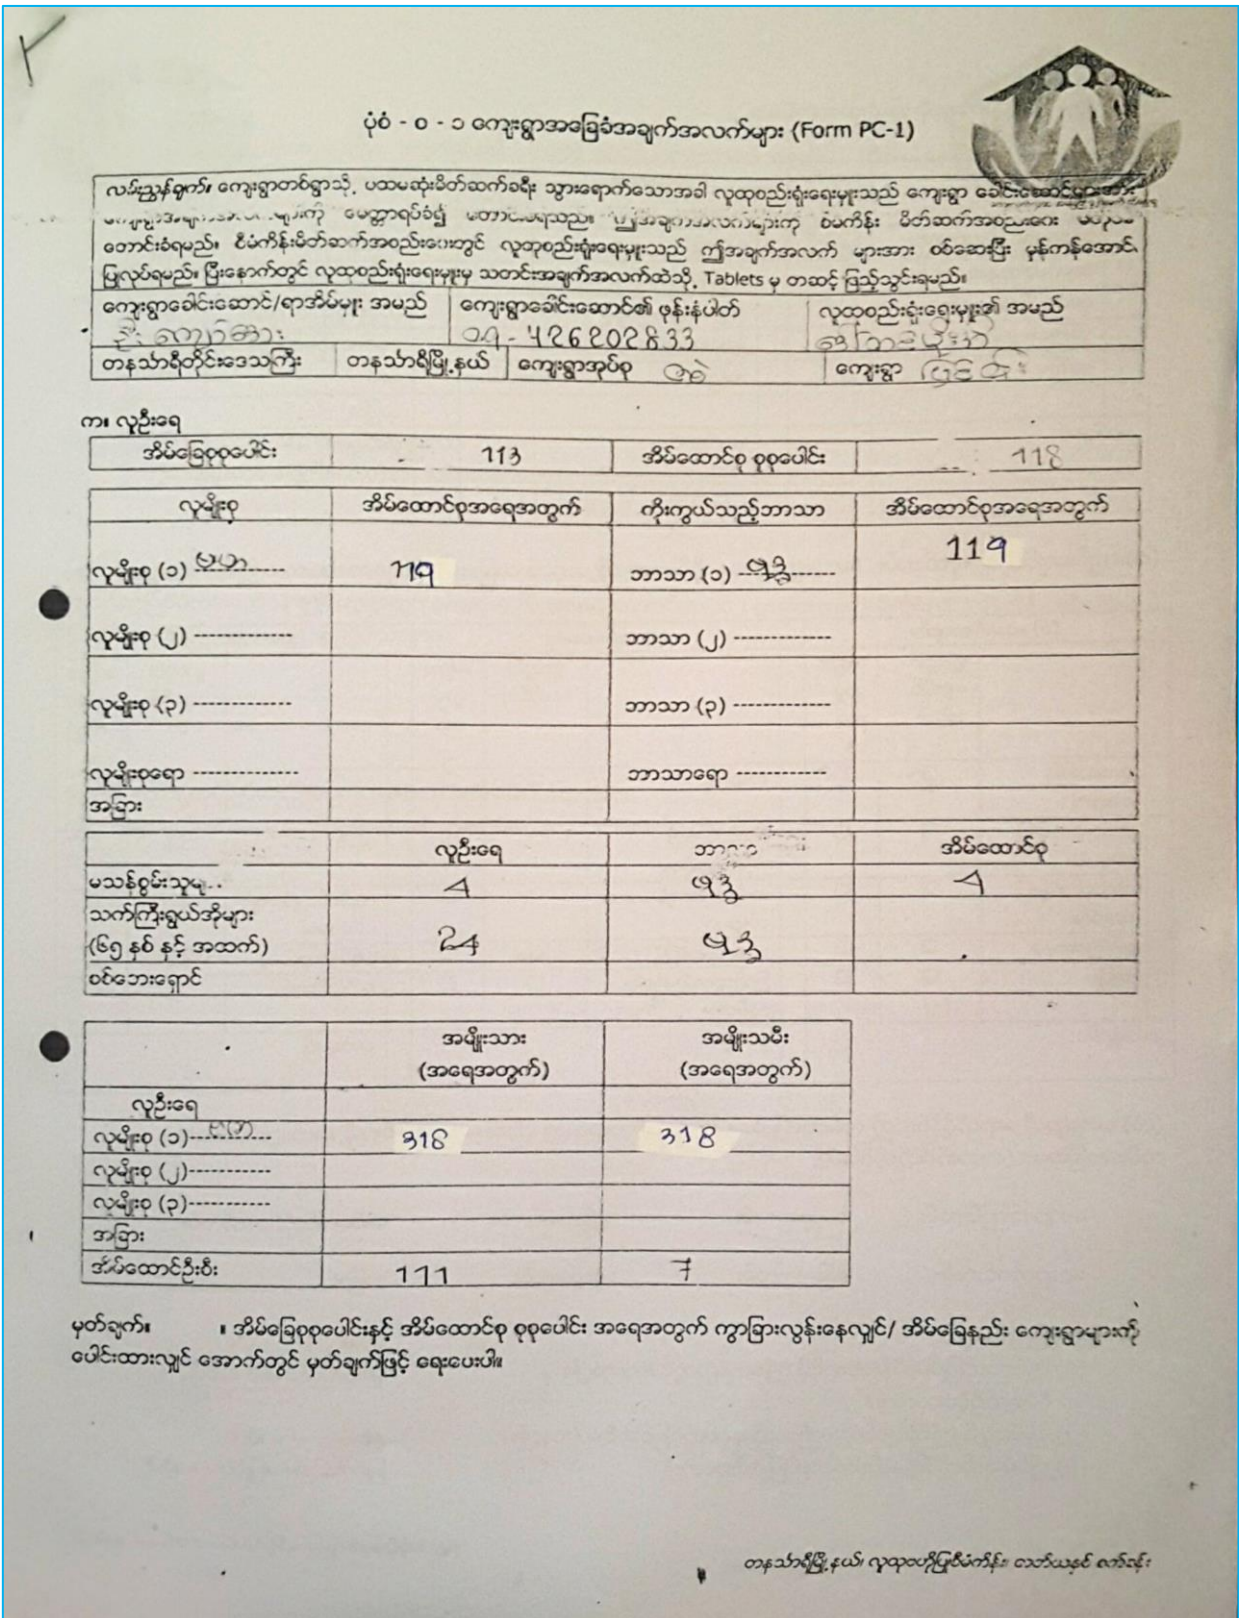 ပုံစံ - ၀ - ၁ ကျေးရွာအခြေခံအချက်အလက်များ (Form PC-1)
လမ်းညွှန်ချက်။ ကျေးရွာတစ်ရွာသို့ ပထမဆုံးမိတ်ဆက်ခရီး သွားရောက်သောအခါ လူထုစည်းရုံးရေးမှူးသည် ကျေးရွာ ခေါင်းဆောင်များအား
မေတ္တာရပ်ခံ၍ ဤအချက်အလက်များကို စီမံကိန်း မိတ်ဆက်အစည်းဝေး
တောင်းခံရမည်။ စီမံကိန်းမိတ်ဆက်အစည်းဝေးတွင် လူထုစည်းရုံးရေးမှူးသည် ဤအချက်အလက် များအား စစ်ဆေးပြီး မှန်ကန်အောင်
ပြုလုပ်ရမည်။ ပြီးနောက်တွင် လူထုစည်းရုံးရေးမှူးမှ သတင်းအချက်အလက်ထဲသို့ Tablets မှ တဆင့် ဖြည့်သွင်းရမည်။
ကျေးရွာခေါင်းဆောင်/ရာအိမ်မှူး အမည် ကျေးရွာခေါင်းဆောင်၏ ဖုန်းနံပါတ် လူထုစည်းရုံးရေးမှူး၏ အမည်
09-426202833
တနင်္သာရီတိုင်းဒေသကြီး တနင်္သာရီမြို့နယ် ကျေးရွာအုပ်စု ကျေးရွာ
က။ လူဦးရေ
အိမ်ခြေစုစုပေါင်း 113 အိမ်ထောင်စု စုစုပေါင်း 118
လူမျိုးစု အိမ်ထောင်စုအရေအတွက် ကိုးကွယ်သည့်ဘာသာ အိမ်ထောင်စုအရေအတွက်
လူမျိုးစု (၁) ဗမာ 119 ဘာသာ (၁) ဗုဒ္ဓ 119
လူမျိုးစု (၂) ------------- ဘာသာ (၂) -------------
လူမျိုးစု (၃) ------------- ဘာသာ (၃) -------------
လူမျိုးစုရော -------------- ဘာသာရော ------------
အခြား
လူဦးရေ ဘာသာ အိမ်ထောင်စု
မသန်စွမ်းသူများ 4 ဗုဒ္ဓ 4
သက်ကြီးရွယ်အိုများ
(၆၅ နှစ် နှင့် အထက်) 24 ဗုဒ္ဓ
စစ်ဘေးရှောင်
အမျိုးသား အမျိုးသမီး
(အရေအတွက်) (အရေအတွက်)
လူဦးရေ
လူမျိုးစု (၁) ဗမာ 318 318
လူမျိုးစု (၂)-----------
လူမျိုးစု (၃)-----------
အခြား
အိမ်ထောင်ဦးစီး 111 7
မှတ်ချက်။ ။ အိမ်ခြေစုစုပေါင်းနှင့် အိမ်ထောင်စု စုစုပေါင်း အရေအတွက် ကွာခြားလွန်းနေလျှင်/ အိမ်ခြေနည်း ကျေးရွာများကို
ပေါင်းထားလျှင် အောက်တွင် မှတ်ချက်ဖြင့် ရေးပေးပါ။
တနင်္သာရီမြို့နယ်၊ လူထုဗဟိုပြုစီမံကိန်း